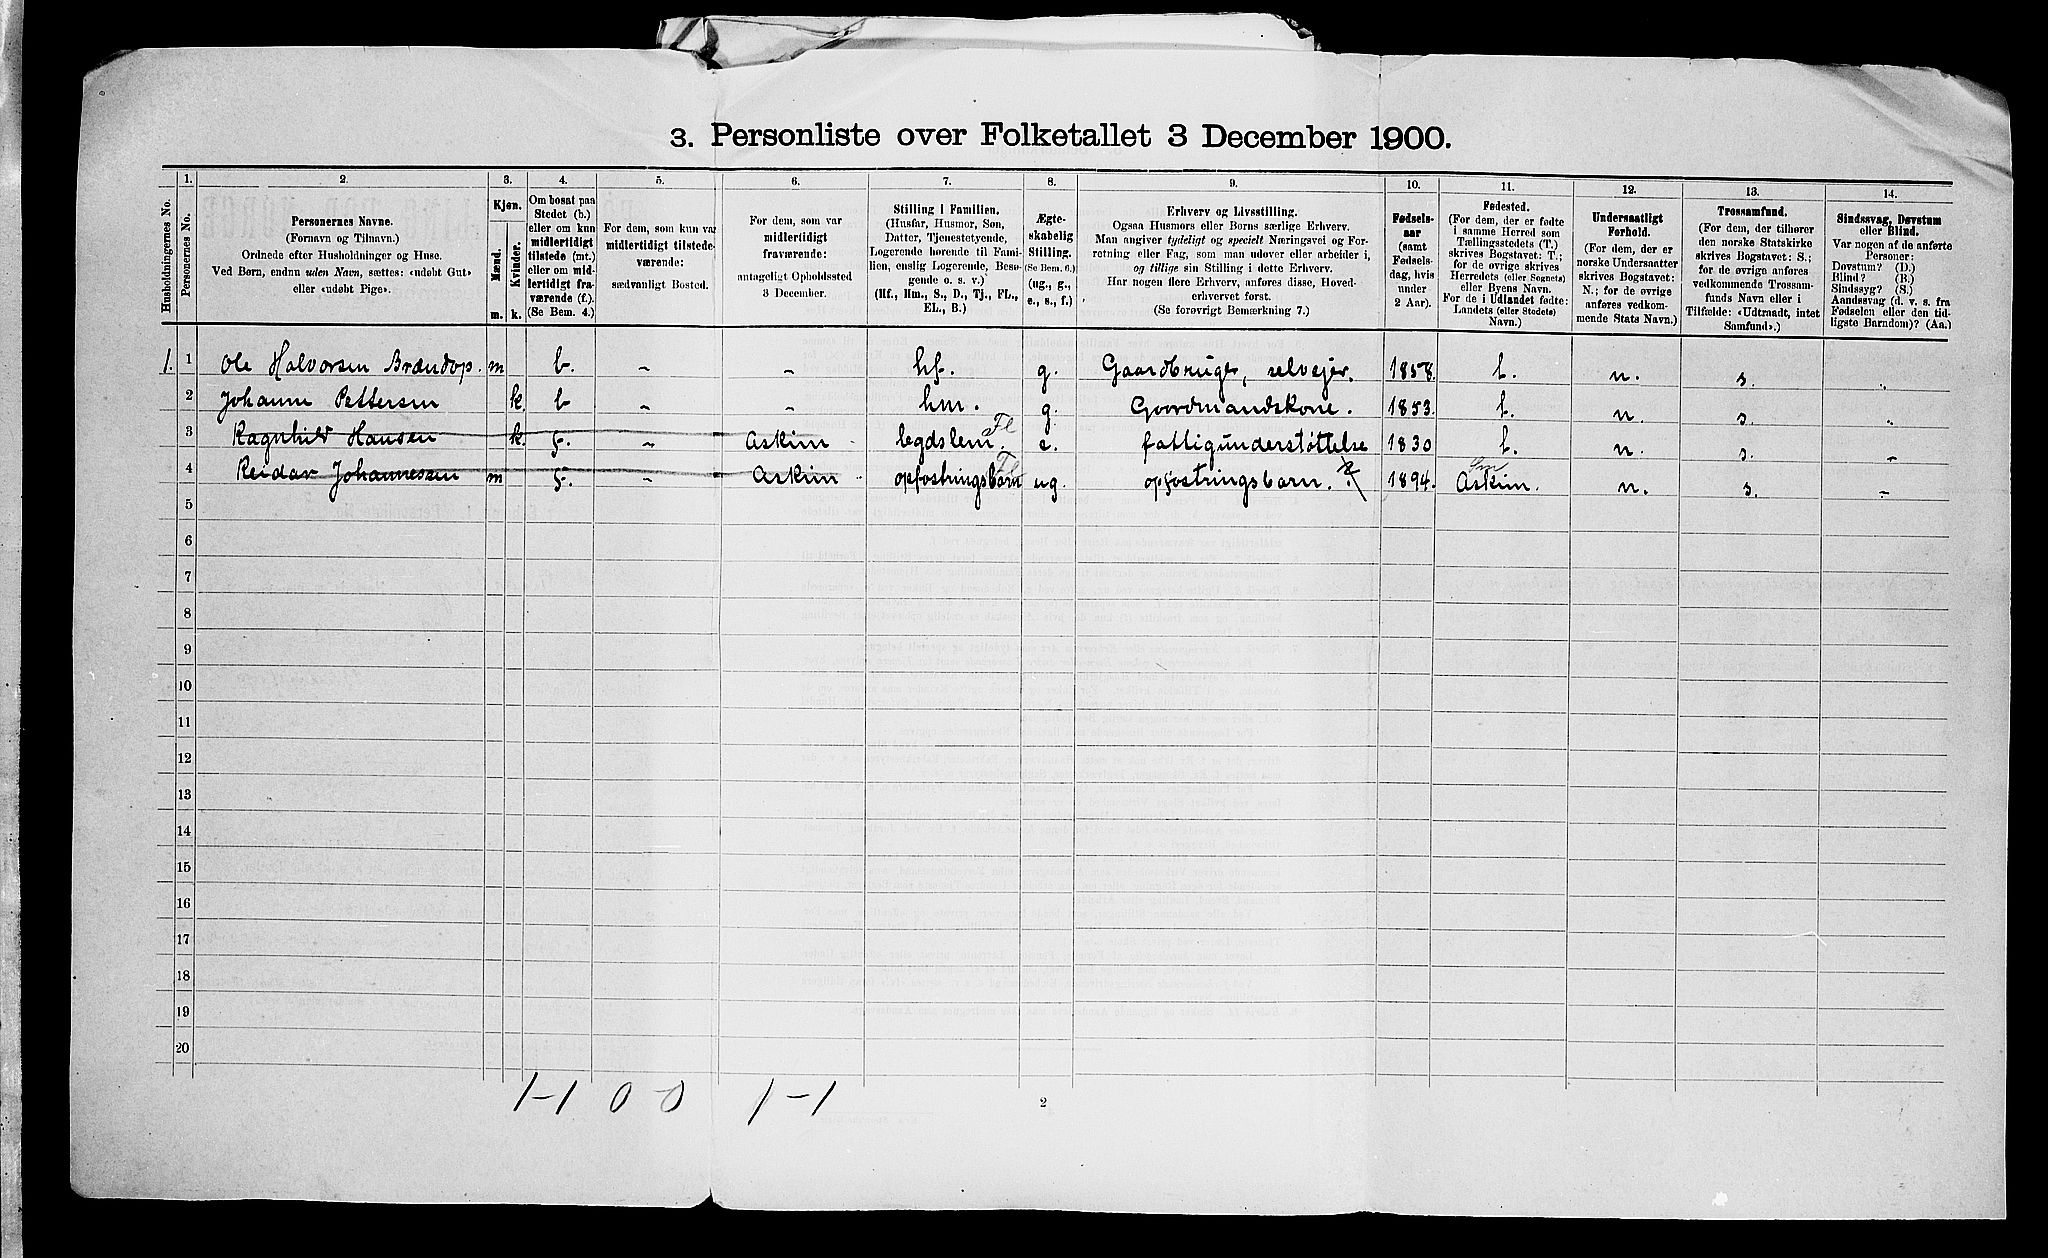 3. Personliste over Folketallet 3 December 1900.
Husholdningernes No.
1.
Personernes No.
2.
Personernes Navne.
(Fornavn og Tilnavn.)
Ordnede efter Husholdninger og Huse.
Ved Børn, endnu uden Navn, sættes: «udøbt Gut»
eller «udøbt Pige».
3.
Kjøn.
Mænd.
Kvinder.
m. k.
4.
Om bosat paa
Stedet (b.)
eller om kun
midlertidigt
tilstede (mt.)
eller om mid-
lertidigt fra-
værende (f.).
(Se Bem. 4.)
5.
For dem, som kun var
midlertidigt tilstede-
værende:
sædvanligt Bosted.
6.
For dem, som var
midlertidigt
fraværende:
antageligt Opholdssted
3 December.
7.
Stilling i Familien.
(Husfar, Husmor, Søn,
Datter, Tjenestetyende,
Logerende hørende til Fami-
lien, enslig Logerende, Besø-
gende o. s. v.)
(Hf., Hm., S., D., Tj., FL.,
EL., B.)
8.
Ægte-
skabelig
Stilling.
(Se Bem. 6.)
(ug., g.,
e., s., f.)
9.
Erhverv og Livsstilling.
Ogsaa Husmors eller Børns særlige Erhverv.
Man angiver tydeligt og specielt Næringsvei og For-
retning eller Fag, som man udover eller arbeider i,
og tillige sin Stilling i dette Erhverv.
Har nogen flere Erhverv, anføres disse, Hoved-
erhvervet først.
(Se forøvrigt Bemærkning 7.)
10.
Fødsels-
aar
(samt
Fødsels-
dag, hvis
under
2 Aar).
11.
Fødested.
(For dem, der er fødte
i samme Herred som
Tællingsstedets (T.)
skrives Bogstavet: T.;
for de øvrige skrives
Herredets (eller Sognets)
eller Byens Navn.
For de i Udlandet fødte:
Landets (eller Stedets)
Navn.)
12.
Undersaatligt
Forhold.
(For dem, der er
norske Undersaatter
skrives Bogstavet:
N.; for de øvrige
anføres vedkom-
mende Stats Navn.)
13.
Trossamfund.
(For dem, der tilhører
den norske Statskirke
skrives Bogstavet: S.;
for de øvrige anføres
vedkommende Trossam-
funds Navn eller i
Tilfælde: «Udtraadt, intet
Samfund».)
14.
Sindssvag, Døvstum
eller Blind.
Var nogen af de anførte
Personer:
Døvstum? (D.)
Blind? (B.)
Sindssyg? (S.)
Aandssvag (d. v. s. fra
Fødselen eller den tid-
ligste Barndom)? (Aa.)
1. 1 Ole Halvorsen Brændop. m b. - - hf. g. Gaardbruger, selvejer. 1858. t. n. s. "
2 Johanne Pettersen k. b - - hm. g. Gaardmandskone. 1853. t. n. s. "
3 Ragnhild Hansen k. f. - Askim legdslem Fl e. fattigunderstøttelse 1830 t. n. s. -
4 Reidar Johannessen m f. - Askim opfostringsbarn Fl ug. opfostringsbarn. 1894. Askim. n. s. -
5
6
7
8
9
10
11
12
13
14
15
16
17
18
19
20
1-1 0-0 1-1
2